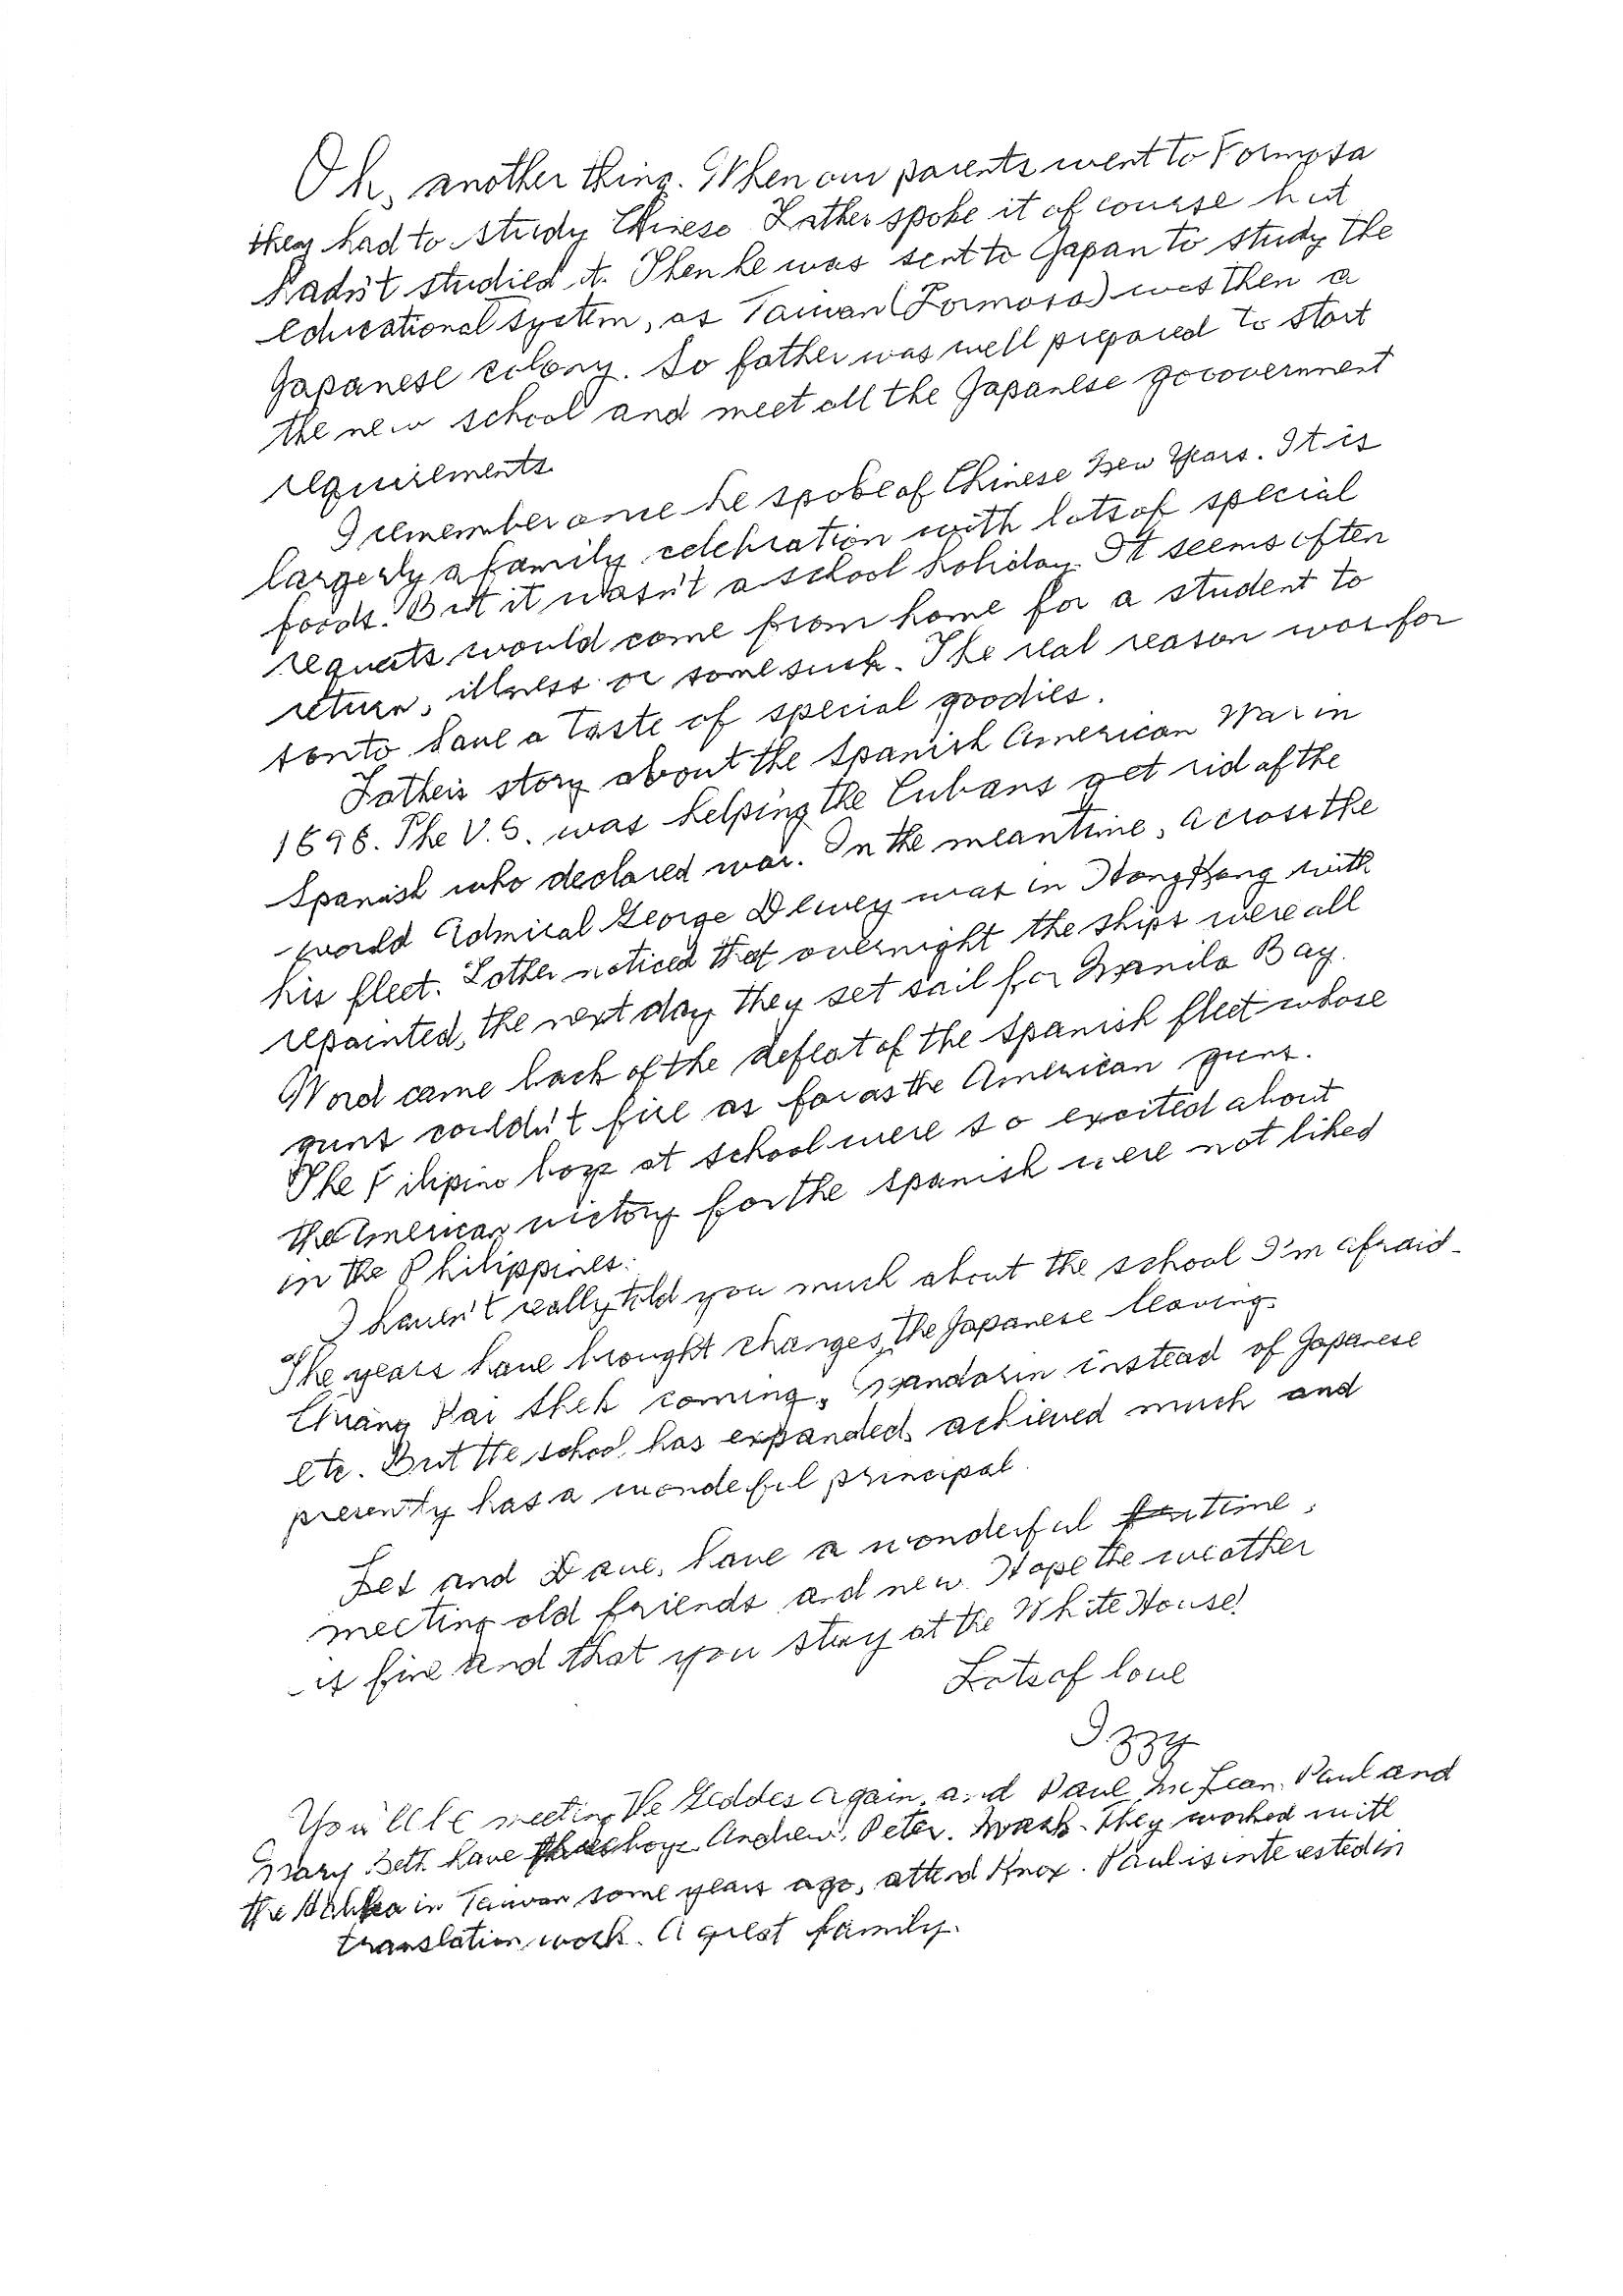 Oh, another thing. When our parents went to Formosa
they had to study Chinese Father spoke it of course but
hadn't studied it. Then he was sent to Japan to study the
educational system, as Taiwan (Formosa) was then a
Japanese colony. So father was well prepared to start
the new school and meet all the Japanese gocovernment
requirements.
I remember once he spoke of Chinese New Years. It is
largerly a family celebration with lots of special
foods. But it wasn't a school holiday. It seems often
requests would come from home for a student to
return, illness or some such. The real reason was for
son to have a taste of special goodies.
Father's story about the Spanish American War in
1898. The U.S. was helping the Cubans get rid of the
Spanish who declared war. In the meantime, across the
world Admiral George Dewey was in Hong Kong with
his fleet. Father noticed that overnight the ships were all
repainted, the next day they set sail for Manila Bay.
Word came back of the defeat of the Spanish fleet whose
guns couldn't fire as far as the American guns.
The Filipino boys at school were so excited about
the American victory for the Spanish were not liked
in the Philippines.
I haven't really told you much about the school I'm afraid.
The years have brought changes, the Japanese leaving.
Chiang Kai Shek coming, Mandarin instead of Japanese
etc. But the school has expanded, achieved much and
presently has a wonderful principal.
Les and Dave, have a wonderful time,
meeting old friends and new. Hope the weather
is fine and that you stay at the White House!
Lots of love
Izzy
You'll be meeting the Geddes again, and Paul McLean. Paul and
Mary Beth have three boys Andrew, Peter, Mark. They worked with
the Hakka in Taiwan some years ago, attend Knox. Paul is interested in
translation work. A great family.